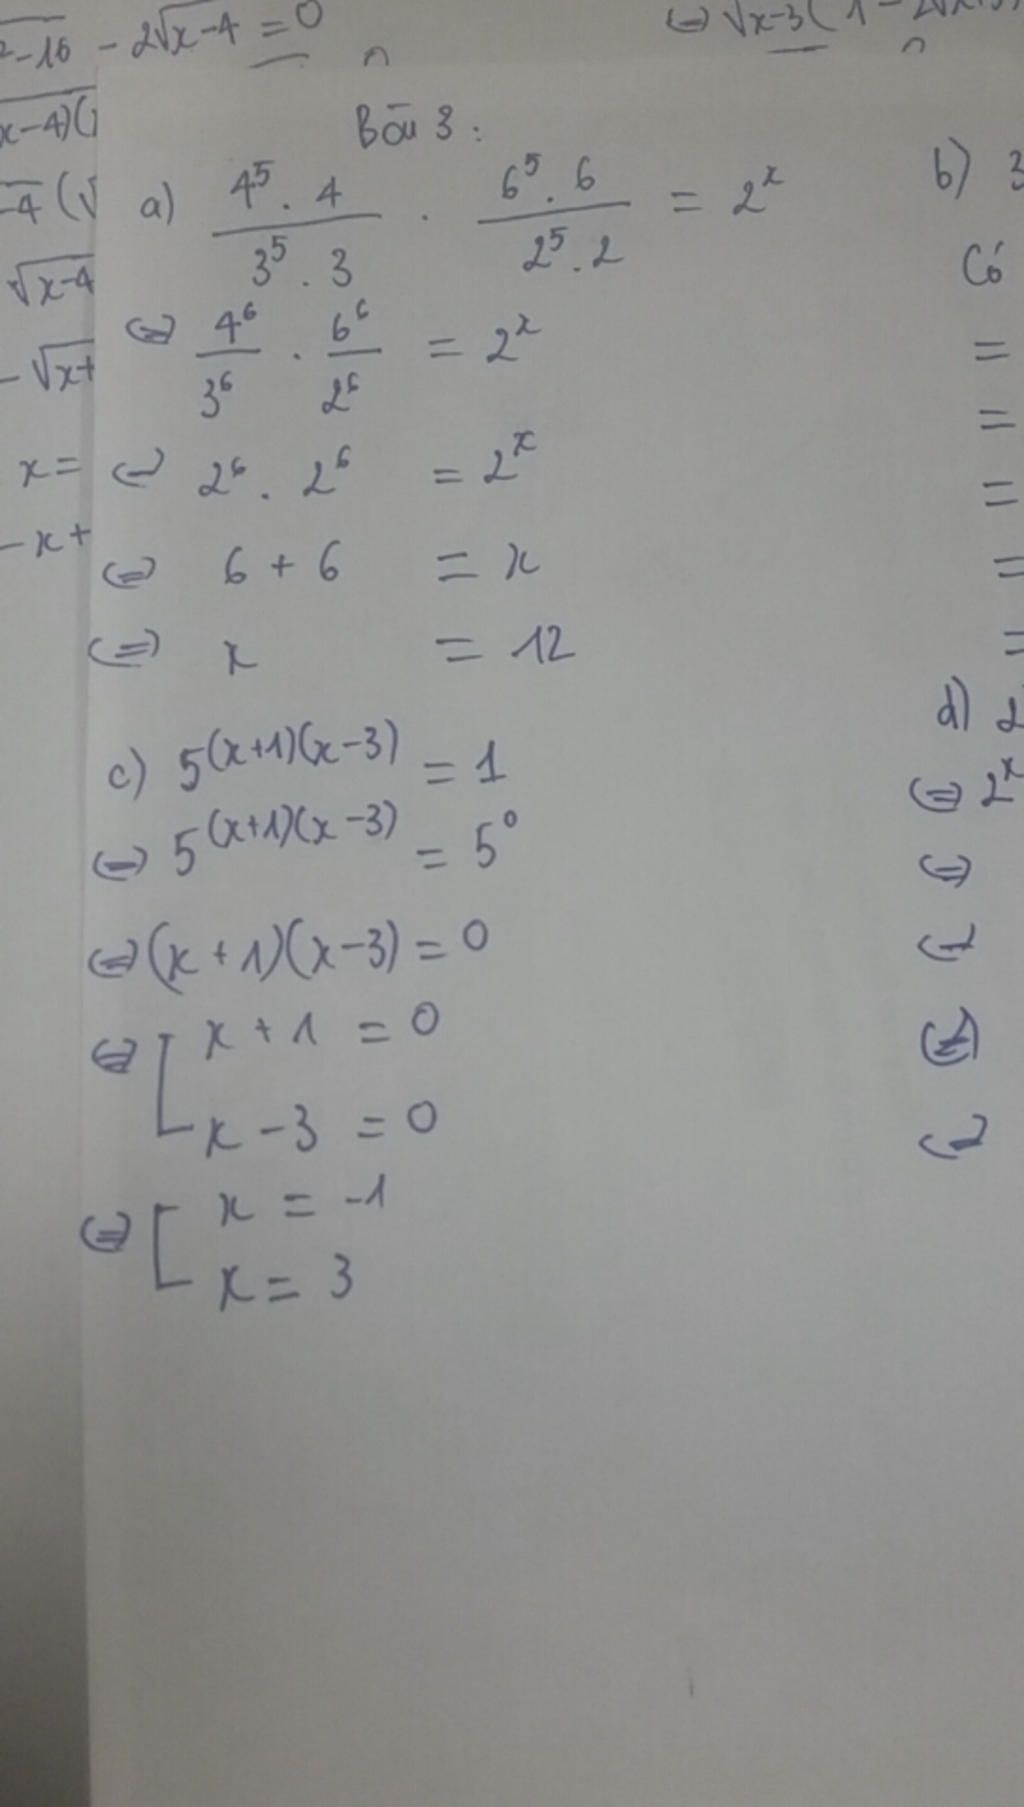 ²-16 - 2√x-4 = 0
(=) √x-3 ( 1 -
x-4)(
-4 (√
√x-4
- √x+
x =
- x +
Bài 3 :
a) 4⁵ . 4 / 3⁵ . 3 . 6⁵ . 6 / 2⁵ . 2 = 2ˣ
(=) 4⁶ / 3⁶ . 6⁶ / 2⁶ = 2ˣ
(=) 2⁶ . 2⁶ = 2ˣ
(=) 6 + 6 = x
(=) x = 12
c) 5^(x+1)(x-3) = 1
(=) 5^(x+1)(x-3) = 5⁰
(=) (x + 1)(x - 3) = 0
(=) [ x + 1 = 0
x - 3 = 0
(=) [ x = -1
x = 3
b) 3
Có
=
=
=
=
=
d) 2
(=) 2ˣ
(=)
(=)
(=)
(=)